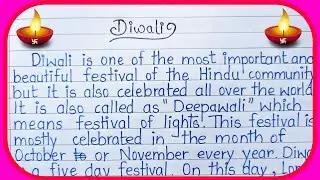 Diwali
Diwali is one of the most important and
beautiful festival of the Hindu community
but it is also celebrated all over the world
It is also called as "Deepawali" which
means festival of lights. This festival is
mostly celebrated in the month of
October or November every year. Diw
a five day festival. On this day, Lor